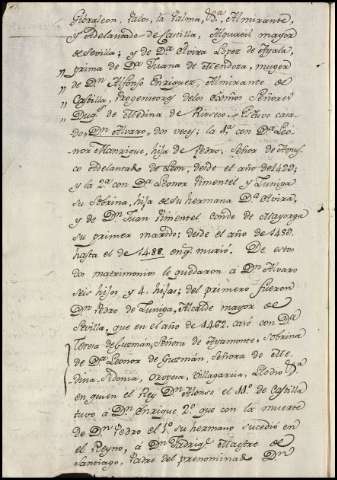 Gibraleon, Palos, la Palma, &ª, Almirante,
y Adelantado de Castilla, Alguacil mayor
de Sevilla; y de Dª Elvira Lopez de Ayala,
prima de Dª Juana de Mendoza, muger
de Dn Alfonso Enriquez, Almirante de
Castilla, Progenitores de los Señores
Duqs de Medina de Rioseco. Estuvo casa-
do, Dn Alvaro, dos veces; la 1ª con Dª Leo-
nor Manrique, hija de Pedro, Señor de
Adelantado de Leon, desde el año de 1429;
y la 2ª con Dª Leonor Pimentel y Zuñiga
su Sobrina, hija de su hermana Dª Elvira,
y de Dn Juan Pimentel Conde de Mayorga
su primer marido; desde el año de 1458.
hasta el de 1488. en q murió. De estos
dos matrimonios le quedaron a Dn Alvaro
seis hijos y 4. hijas; del primero fueron
Dn Pedro de Zuñiga, Alcalde mayor de
Sevilla, que en el año de 1462. casó con Dª
Teresa de Guzmán, Señora de Ayamonte, Sobrina
de Dª Leonor de Guzmán, Señora de Me-
dina-Sidonia, Oropesa, Villagarcia,
en quien el Rey Dn Alonso el 11º de Castilla
tuvo á Dn Enrique 2º que con la muerte
de Dn Pedro el 1º su hermano sucedió en
el Reyno, á Dn Fadriqe Maestre de
Santiago, Padre del prenominado Dn